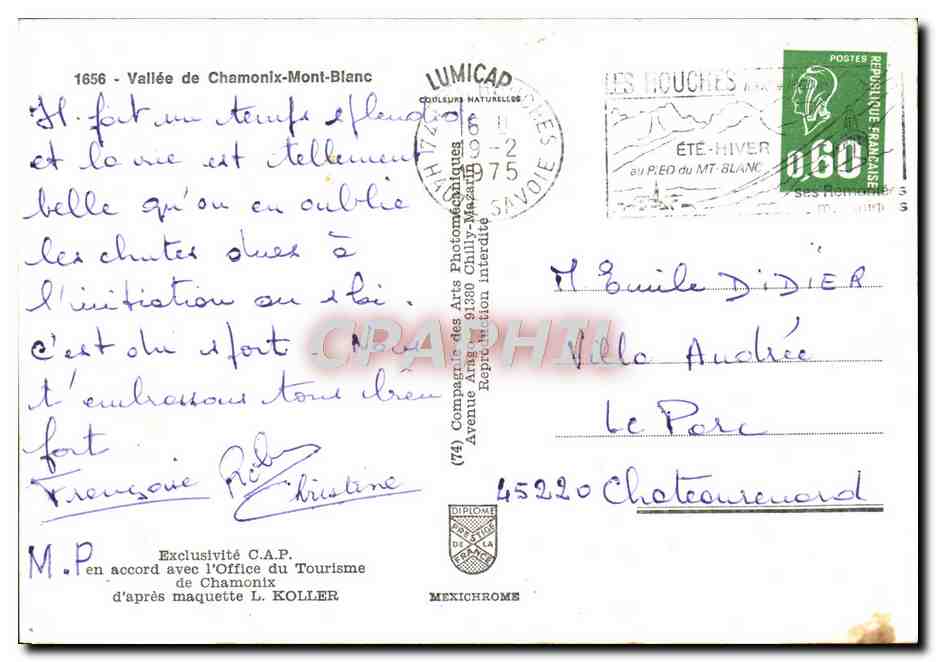 1656 - Vallée de Chamonix-Mont-Blanc
Il fait un temps splendide
et la vie est tellement
belle qu'on en oublie
les chutes dues à
l'initiation au ski.
c'est du sport. Nous
t'embrassons tous bien
fort
Françoise Robin Christine
M.P
Exclusivité C.A.P.
en accord avec l'Office du Tourisme
de Chamonix
d'après maquette L. KOLLER
LUMICAP
COULEURS NATURELLES
(74) Compagnie des Arts Photomécaniques
Avenue Arago 91380 Chilly-Mazarin
Reproduction interdite
DIPLOME
PRESTIGE
DE LA
FRANCE
MEXICHROME
74 LES HOUCHES
16 H
19-2
1975
HTE SAVOIE
LES HOUCHES
ÉTÉ-HIVER
au PIED du MT-BLANC
ses Remontées
POSTES
RÉPUBLIQUE FRANÇAISE
0,60
M Emile DIDIER
Villa Andrée
Le Parc
45220 Chateaurenard
CRAPHIL